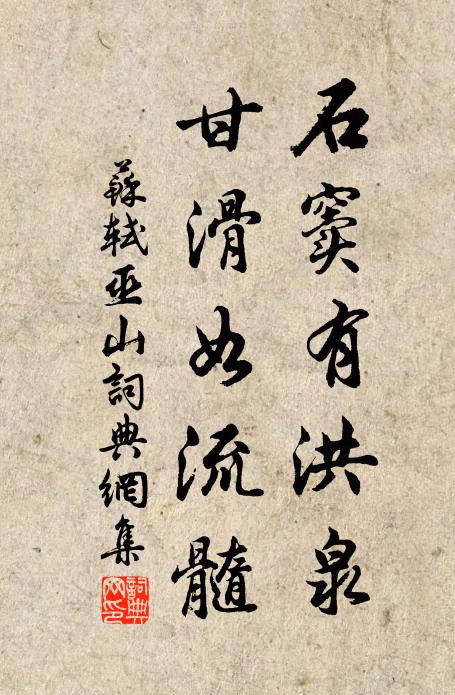 石窦有洪泉
甘滑如流髓
蘇軾巫山詞典網集
詞典網印